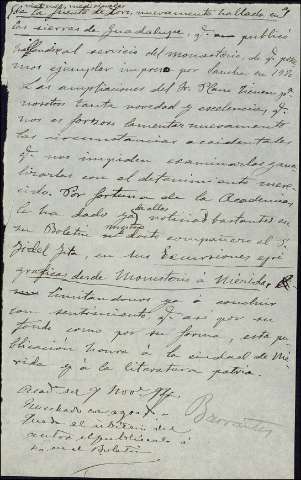 de la fuente de oro, nuevamente hallado en
las sierras de Guadalupe, q. publicó
al servicio del monasterio, de q. posee-
mos ejemplar impreso por Sancha en
Las ampliaciones del Sr. Plano tienen pª
nosotros tanta novedad y excelencia, q.
nos es forzoso lamentar nuevamente
las circunstancias accidentales
q. nos impiden examinarlas y ana-
lizarlas con el detenimiento mere-
cido. Por fortuna de la Academia,
le ha dado ya noticias bastantes en
su Boletin nuestro docto compañero el P.
Fidel Fita, en sus Excursiones epi-
gráficas desde Monesterio á Mérida,
limitandonos ya á concluir
con sentimiento q. asi por su
fondo como por su forma, esta pu-
blicación honra á la ciudad de Mé-
rida y á la literatura patria.
Acad. del 9 Novº.
Barrantes
queda el arbitrio del
autor el publicarlo ó
no en el Boletin